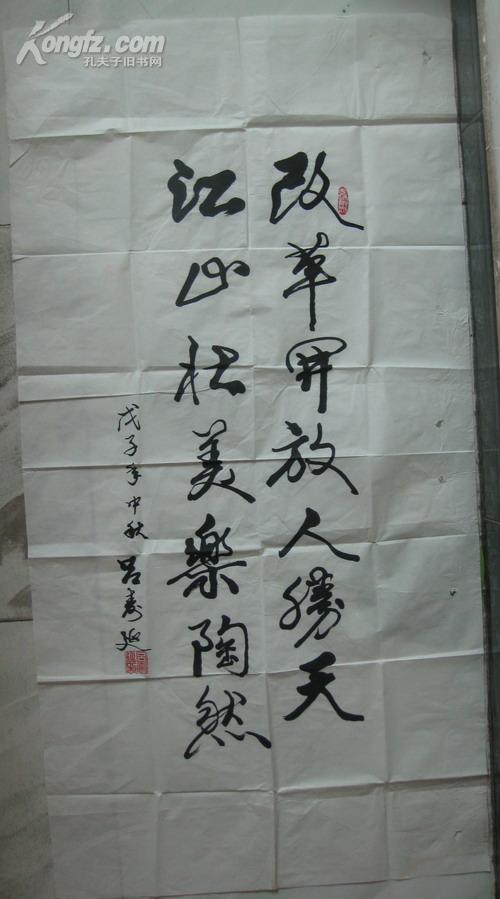 Kongfz.com
孔夫子旧书网
改革開放人勝天
江山壮美樂陶然
戊子年中秋 吕寿延